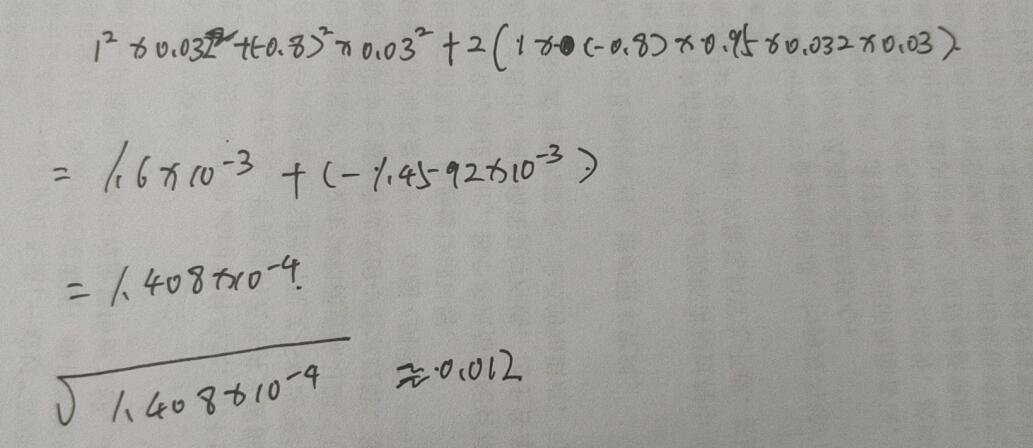 1² × 0.032² + (-0.8)² × 0.03² + 2(1 × (-0.8) × 0.95 × 0.032 × 0.03)
= 1.6 × 10⁻³ + (-1.4592 × 10⁻³)
= 1.408 × 10⁻⁴.
√1.408 × 10⁻⁴ ≈ 0.012